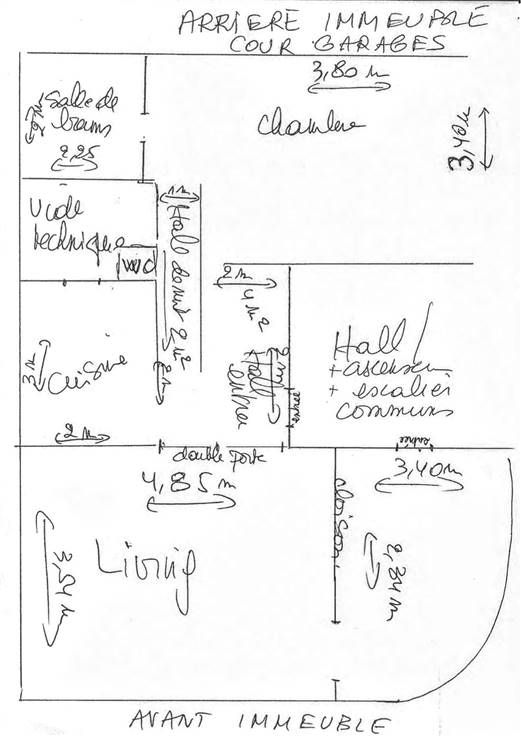 ARRIERE IMMEUBLE
COUR GARAGES
3,80 m
Salle de
bains
2 m
2,25
chambre
3,40 m
1 m
Hall de nuit 2 m²
Vide
technique
WC
2 m
4 m²
Hall
entrée
2 m
entrée
Hall
+ ascenseur
+ escalier
communs
3 m
Cuisine
2 m
2 m
double porte
entrée
4,85 m
3,40 m
cloison
Living
3,54 m
2,84 m
AVANT IMMEUBLE